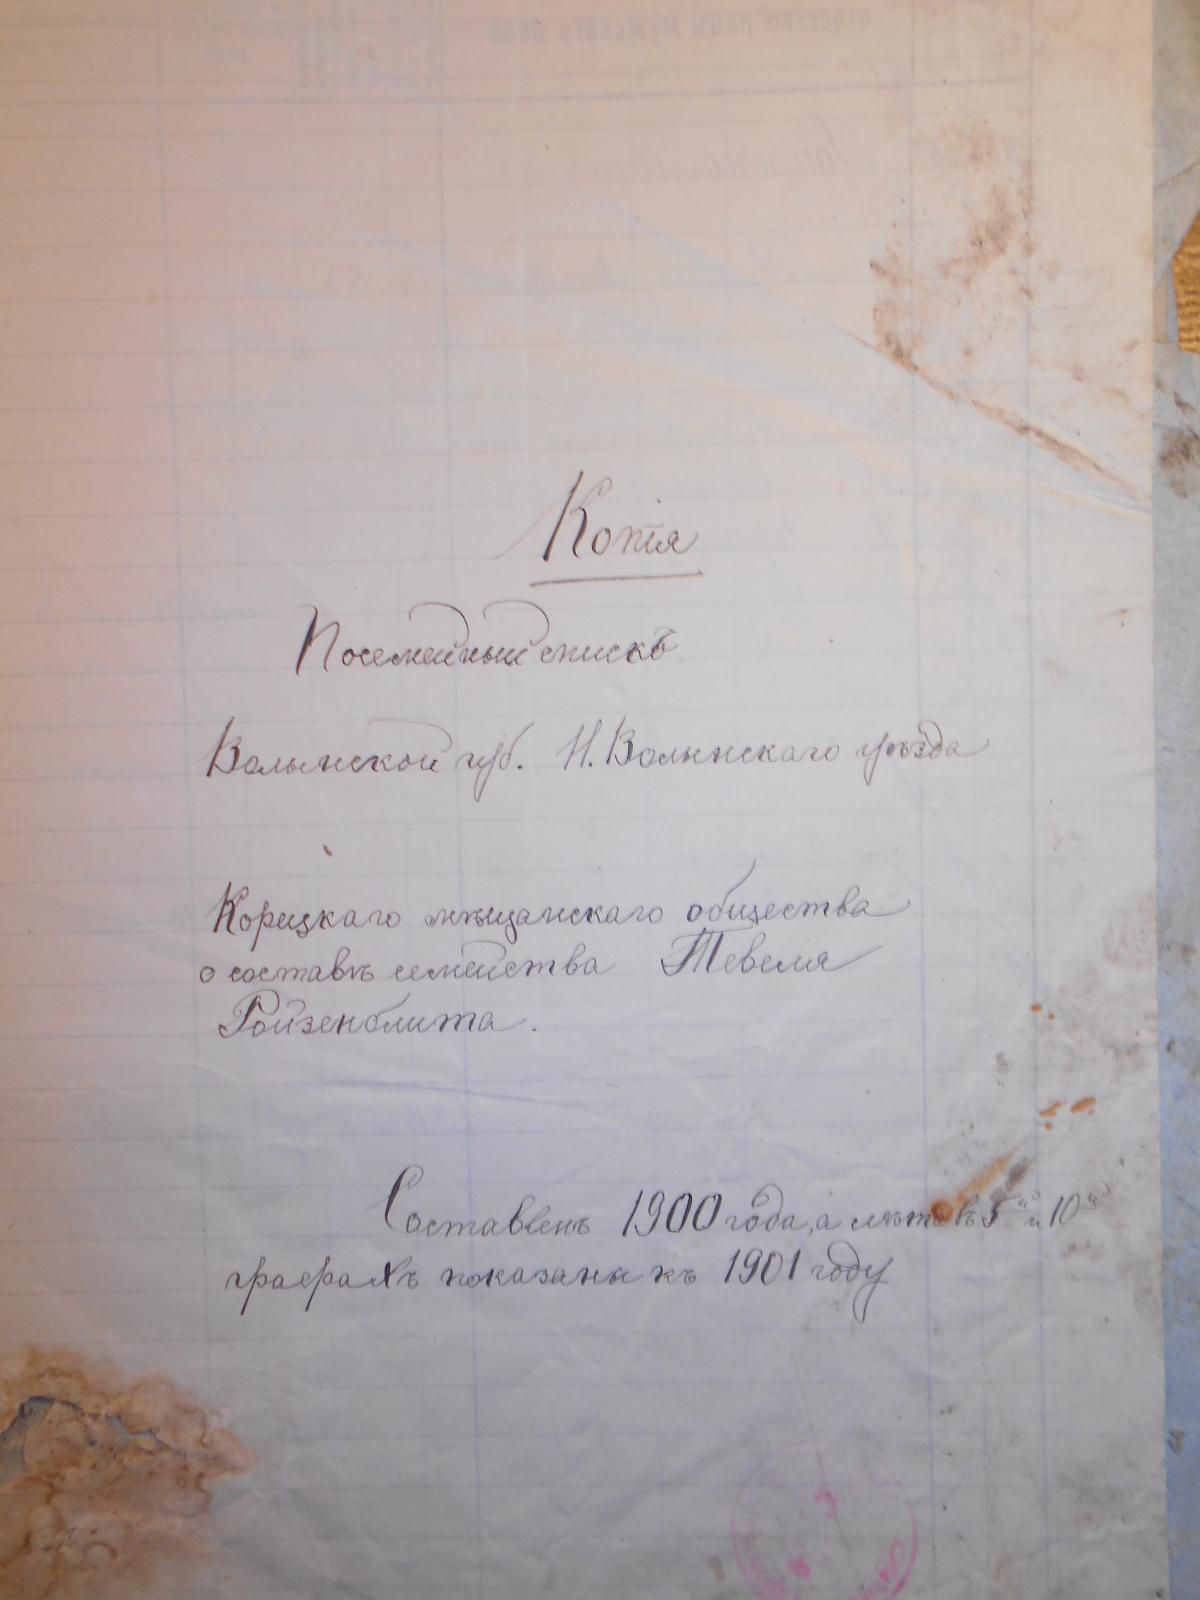 Копія
Посемейный списокъ
Волынской губ. Н. Волынскаго уѣзда
Корецкаго мѣщанскаго общества
о составѣ семейства Тевеля
Ройзенблита.
Составленъ 1900 года, а лѣта въ 5й и 10й
графахъ показаны къ 1901 году